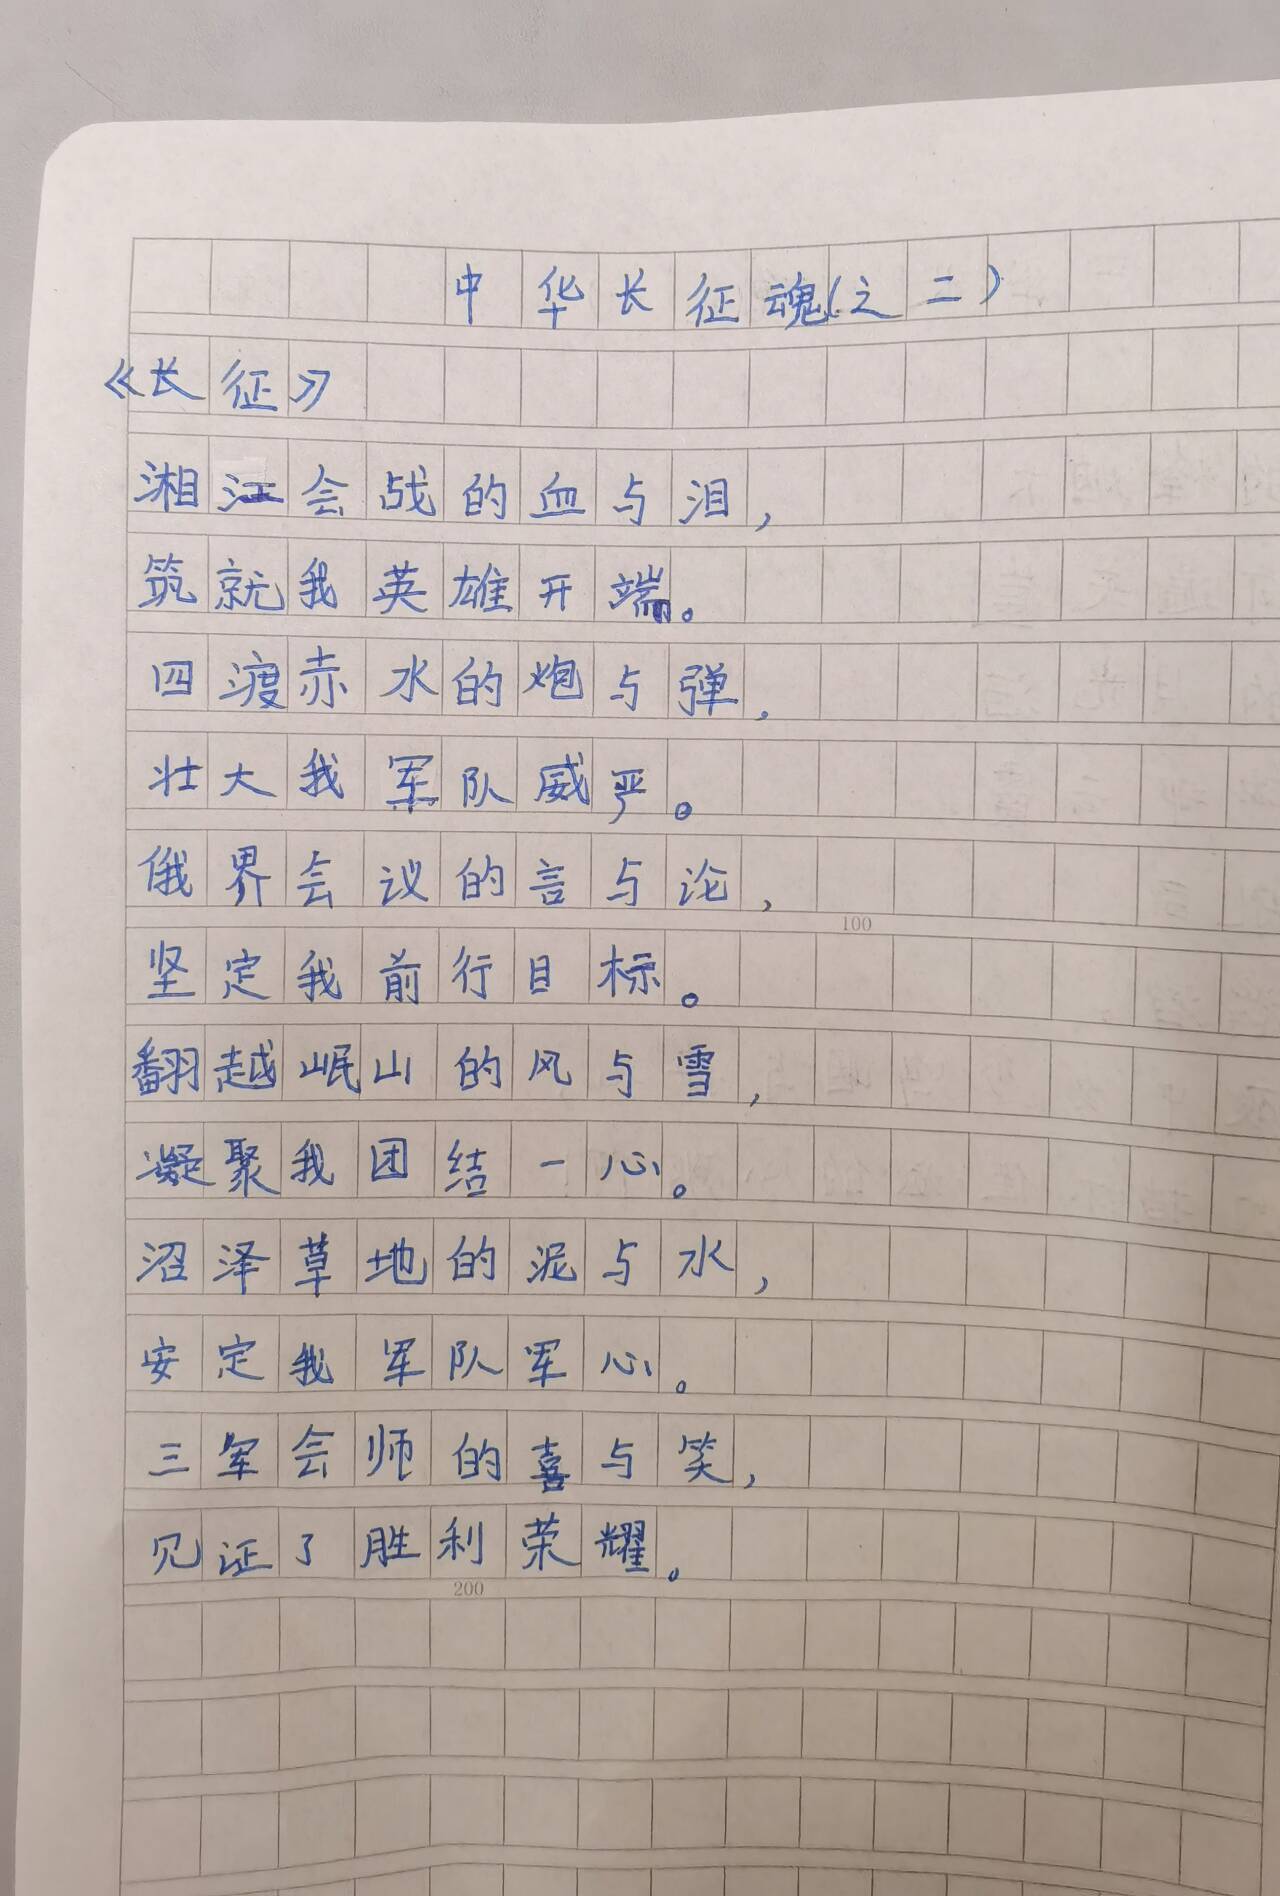 中华长征魂(之二)
《长征》
湘江会战的血与泪，
筑就我英雄开端。
四渡赤水的炮与弹，
壮大我军队威严。
俄界会议的言与论，
100
坚定我前行目标。
翻越岷山的风与雪，
凝聚我团结一心。
沼泽草地的泥与水，
安定我军队军心。
三军会师的喜与笑，
见证了胜利荣耀。
200